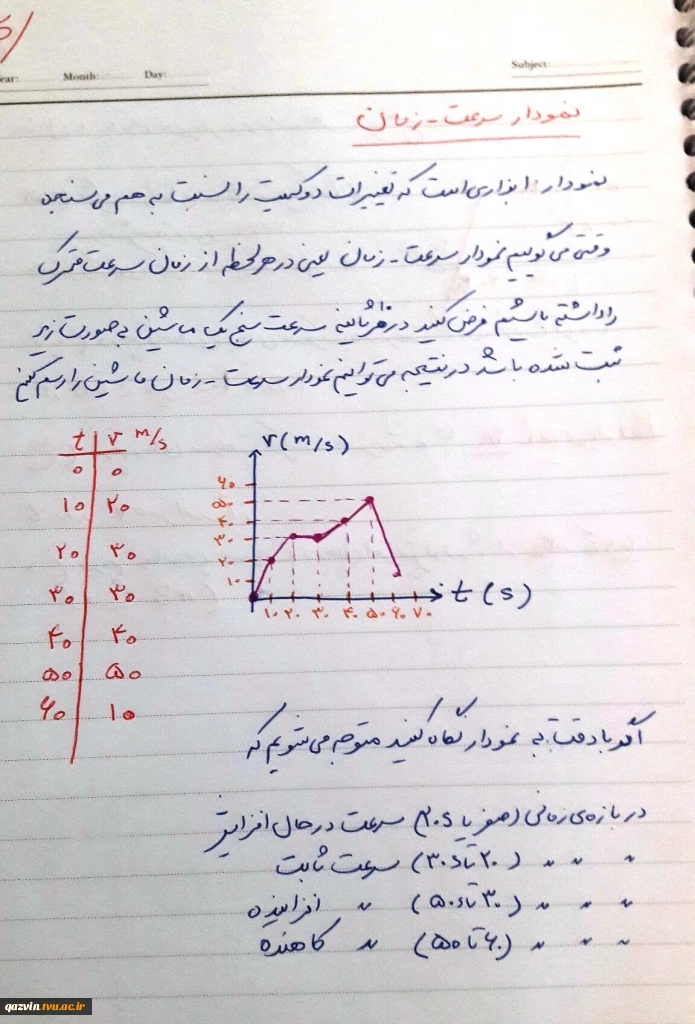 Year: Month: Day: Subject:
نمودار سرعت - زمان
نمودار ابزاری است که تغییرات دو کمیت را نسبت به هم می‌سنجد
وقتی می‌گوییم نمودار سرعت - زمان یعنی در هر لحظه از زمان سرعت متحرک
را داشته باشیم فرض کنید در هر ثانیه سرعت سنج یک ماشین به صورت زیر
ثبت شده باشد در نتیجه می‌توانیم نمودار سرعت - زمان ماشین را رسم کنیم
t v m/s
۰ ۰
۱۰ ۲۰
۲۰ ۳۰
۳۰ ۳۰
۴۰ ۴۰
۵۰ ۵۰
۶۰ ۱۰
v (m/s)
۶۰
۵۰
۴۰
۳۰
۲۰
۱۰
۱۰ ۲۰ ۳۰ ۴۰ ۵۰ ۶۰ ۷۰
t (s)
اگر با دقت به نمودار نگاه کنید متوجه می‌شویم که
در بازه‌ی زمانی (صفر تا ۲۰s) سرعت در حال افزایش
" " " (۲۰ تا ۳۰s) سرعت ثابت
" " " (۳۰ تا ۵۰s) " افزاینده
" " " (۵۰ تا ۶۰) " کاهنده
qazvin.tvu.ac.ir